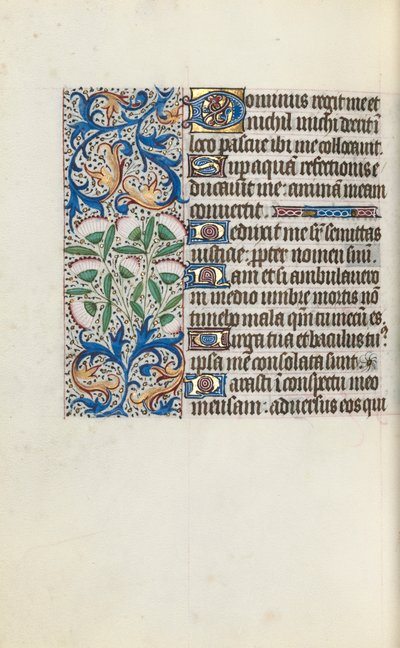 Dominus regit me et
nichil michi deerit ī
loco pascue ibi me collocauit.
Sup aquā refectionis e
ducauit me: animā meam
conuertit.
Deduxit me sr̄ semittas
iusticie: ꝓpter nomen suū.
Nam et si ambulauero
in medio umbre mortis nō
timebo mala qm̄ tu mecū es
Uirga tua et baculus tuꝰ
ipsa me consolata sunt.
Parasti ī conspectu meo
mensam: aduersus eos qui